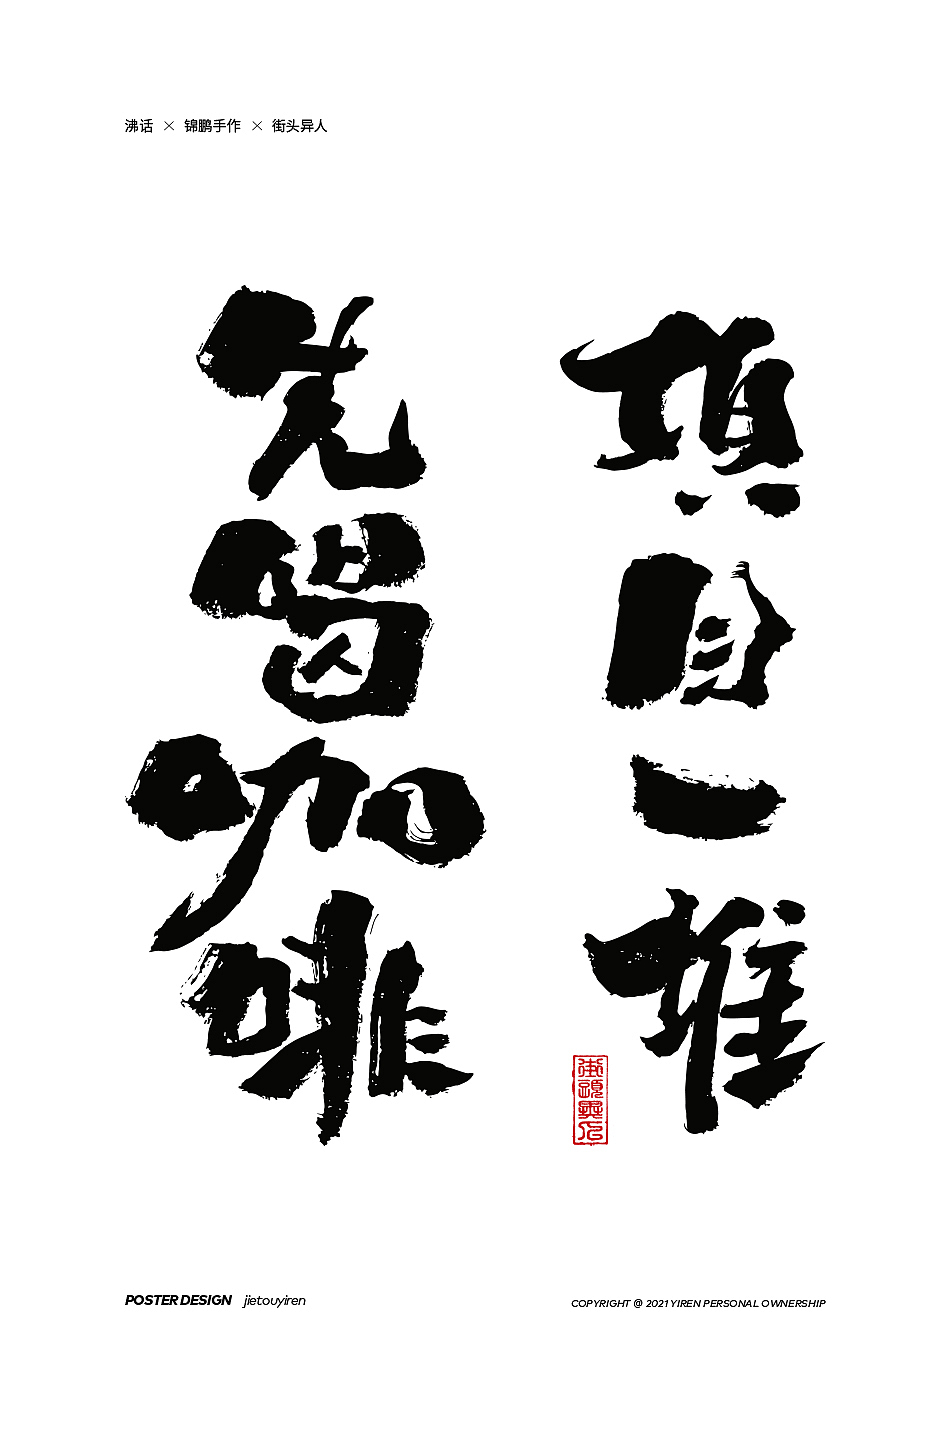 沸话 × 锦鹏手作 × 街头异人
項目一堆
先留咖啡
街頭異人
POSTER DESIGN jietouyiren
COPYRIGHT @ 2021 YIREN PERSONAL OWNERSHIP